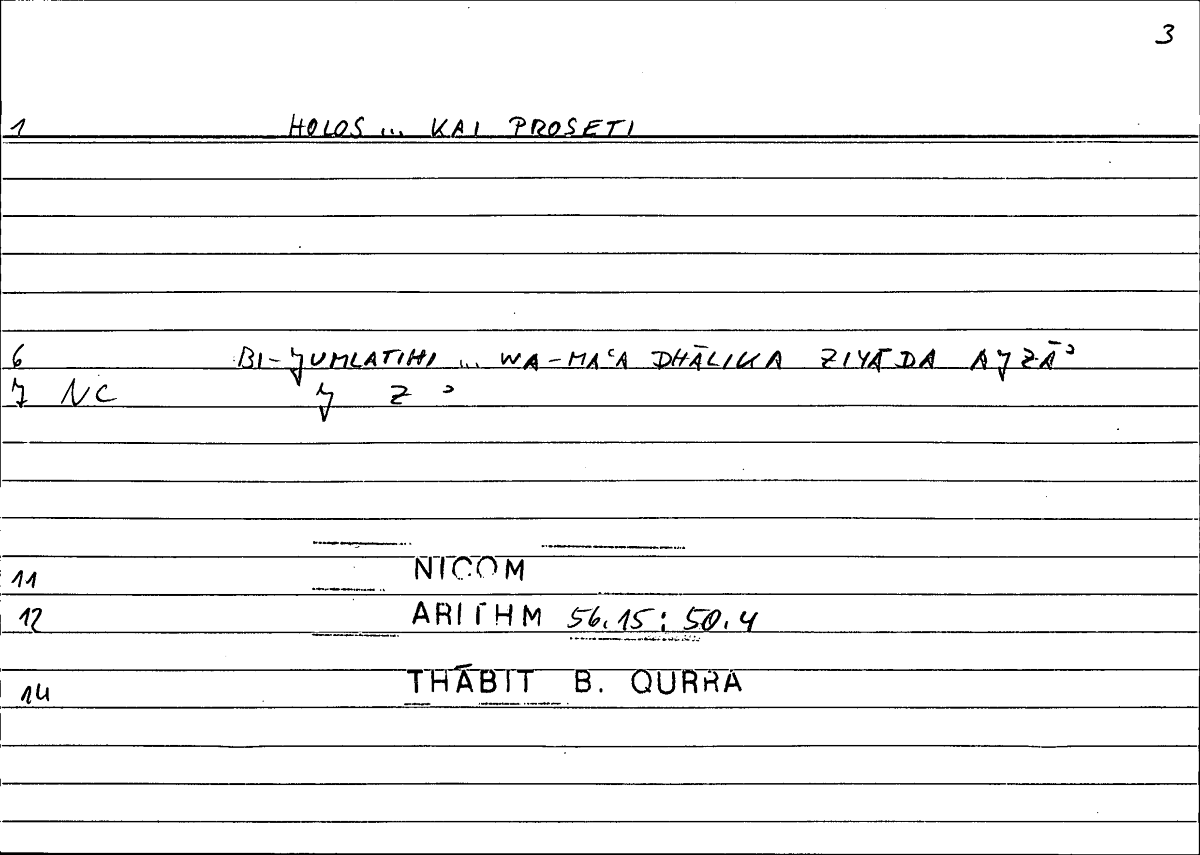 3
1 HOLOS ... KAI PROSETI
6 BI-JUMLATIHI ... WA-MAʿA DHĀLIKA ZIYĀDA AJZĀʾ
7 NC J Z ʾ
11 NICOM
12 ARITHM 56.15 : 50.4
14 THĀBIT B. QURRA